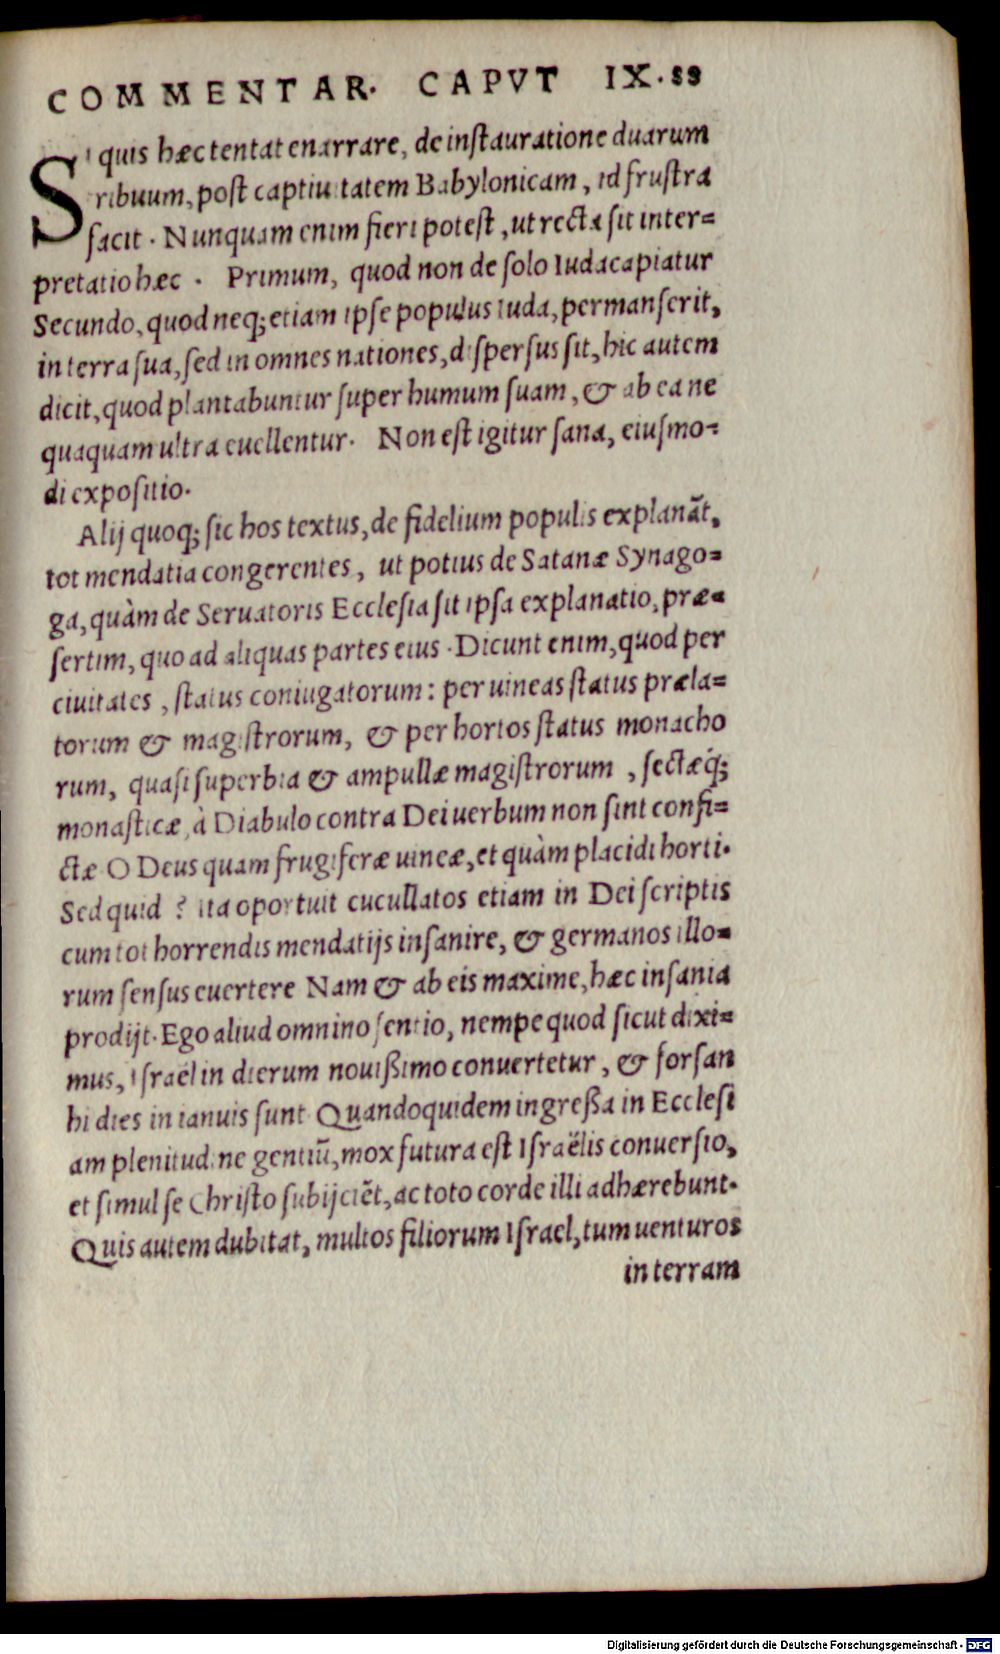 COMMENTAR. CAPVT IX. 89
Si quis hæc tentat enarrare, de instauratione duarum
tribuum, post captiuitatem Babylonicam, id frustra
facit. Nunquam enim fieri potest, ut recta sit inter=
pretatio hæc. Primum, quod non de solo Iuda capiatur
Secundo, quod neq; etiam ipse populus Iuda, permanserit,
in terra sua, sed in omnes nationes, dispersus sit, hic autem
dicit, quod plantabuntur super humum suam, & ab ea ne
quaquam ultra euellentur. Non est igitur sana, eiusmo=
di expositio.
Alij quoq; sic hos textus, de fidelium populis explanãt,
tot mendatia congerentes, ut potius de Satanæ Synago=
ga, quàm de Seruatoris Ecclesia sit ipsa explanatio, præ=
sertim, quo ad aliquas partes eius. Dicunt enim, quod per
ciuitates, status coniugatorum: per uineas status præla=
torum & magistrorum, & per hortos status monacho
rum, quasi superbia & ampullæ magistrorum, sectæq́;
monasticæ, à Diabulo contra Dei uerbum non sint confi=
ctæ O Deus quam frugiferæ uineæ, et quàm placidi horti.
Sed quid ? ita oportuit cucullatos etiam in Dei scriptis
cum tot horrendis mendatijs insanire, & germanos illo=
rum sensus euertere Nam & ab eis maxime, hæc insania
prodijt. Ego aliud omnino sentio, nempe quod sicut dixi=
mus, Israël in dierum nouißimo conuertetur, & forsan
hi dies in ianuis sunt Quandoquidem ingreßa in Ecclesi
am plenitudine gentiũ, mox futura est Israëlis conuersio,
et simul se Christo subijciẽt, ac toto corde illi adhærebunt.
Quis autem dubitat, multos filiorum Israel, tum uenturos
in terram
Digitalisierung gefördert durch die Deutsche Forschungsgemeinschaft - DFG